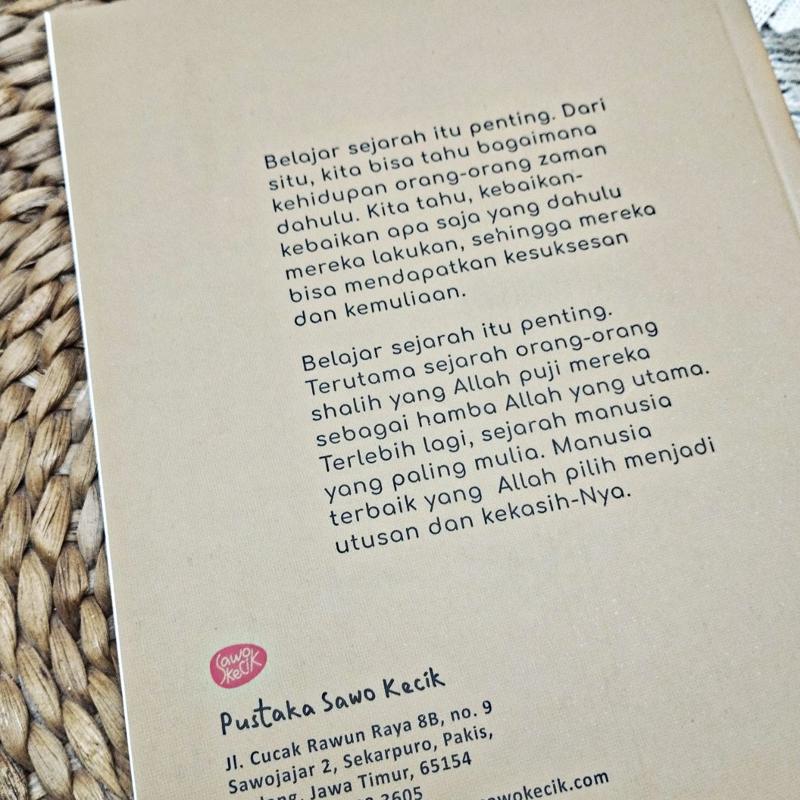 Belajar sejarah itu penting. Dari
situ, kita bisa tahu bagaimana
kehidupan orang-orang zaman
dahulu. Kita tahu, kebaikan-
kebaikan apa saja yang dahulu
mereka lakukan, sehingga mereka
bisa mendapatkan kesuksesan
dan kemuliaan.
Belajar sejarah itu penting.
Terutama sejarah orang-orang
shalih yang Allah puji mereka
sebagai hamba Allah yang utama.
Terlebih lagi, sejarah manusia
yang paling mulia. Manusia
terbaik yang Allah pilih menjadi
utusan dan kekasih-Nya.
Sawo
kecik
Pustaka Sawo Kecik
Jl. Cucak Rawun Raya 8B, no. 9
Sawojajar 2, Sekarpuro, Pakis,
Jawa Timur, 65154
2605